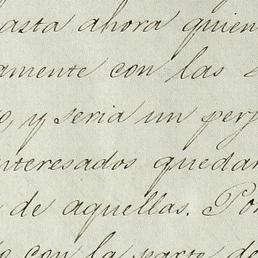 asta ahora quien
amente con las
o, y seria un perj
nteresados quedar
de aquellas. Po
con la parte de